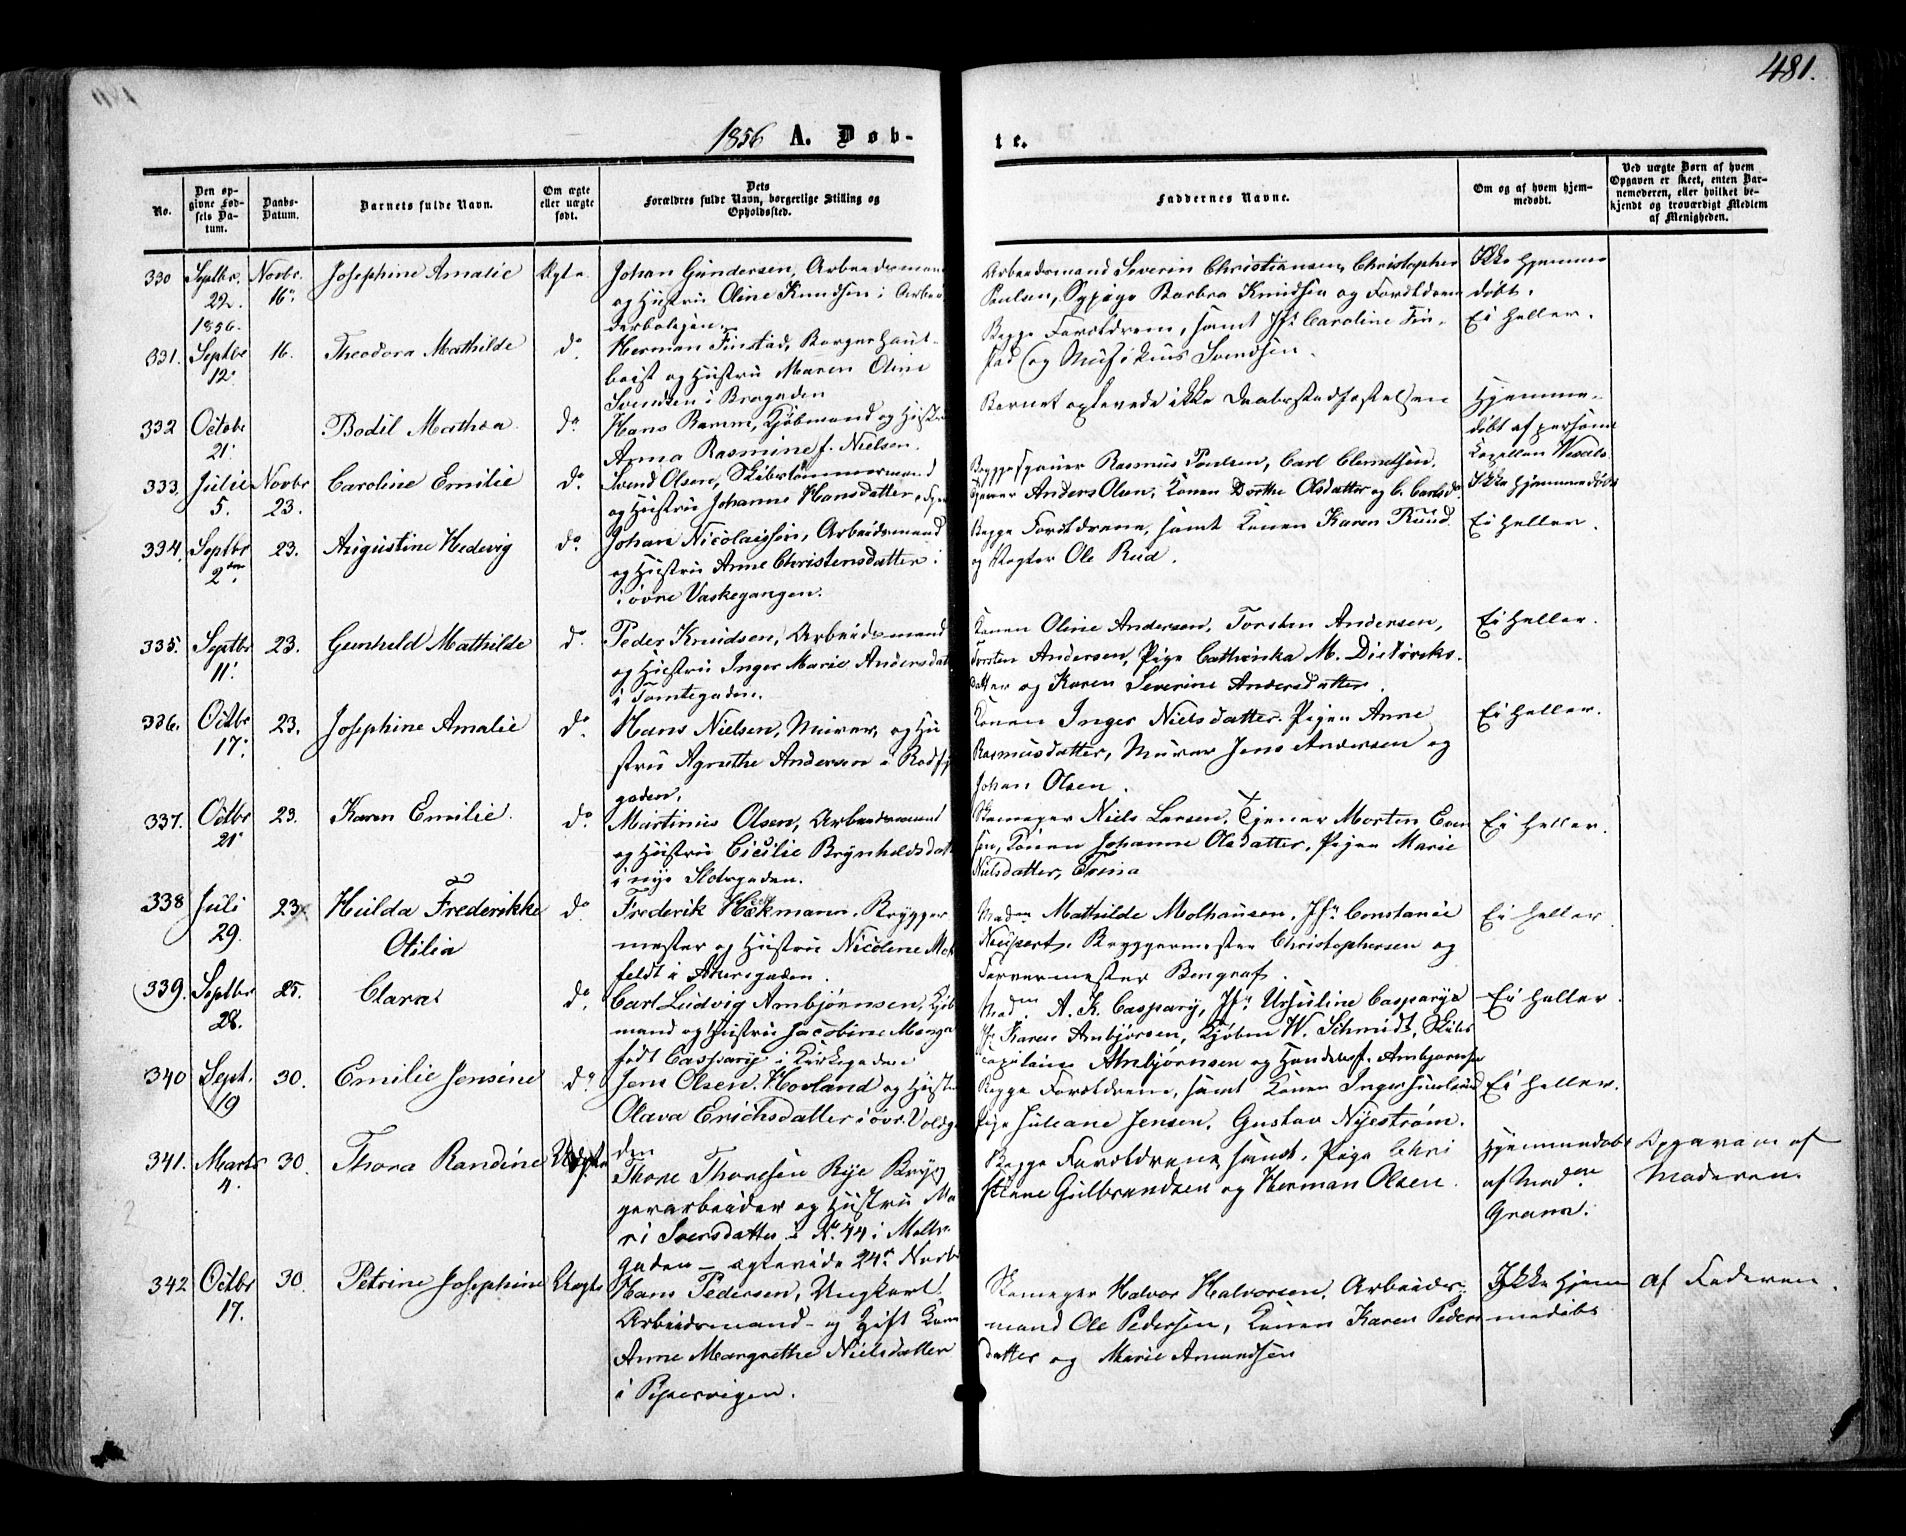 481.
1856 A. Døb-
te.
No.
Den opgivne Fødsels Datum.
Daabs-Datum.
Barnets fulde Navn.
Om ægte eller uægte født.
Dets Forældres fulde Navn, borgerlige Stilling og Opholdssted.
Faddernes Navne.
Om og af hvem hjemmedøbt.
Ved uægte Børn af hvem Opgaven er skeet, enten Barnemoderen, eller hvilket bekjendt og troværdigt Medlem af Menigheden.
330 Septbr. 22. 1856. Novbr. 16. Josephine Amalie Ægte
Johan Gundersen, Arbeidsmand
og Hustru Oline Knudsen i Arbei
derboligen.
Arbeidsmand Severin Christiansen, Christopher
Paulsen, Sypige Barbra Knudsen og Forældrene
Ikke hjemme
døbt.
331. Septbr 12. 16. Theodora Mathilde do
Herman Finstad, Borger Haut-
boist og Hustru Maren Oline
Svendsen i Brogaden
Begge Forældrene, samt Jfr Caroline Fin-
stad og Musikus Svendsen.
Ei heller.
332 Octobr 21. Bodil Mathea do
Hans Ramm, Kjøbmand og Hustru
Anna Rasmine f. Nielsen.
Barnet oplevede ikke Daabsstadfæstelsen
Hjemme-
døbt af personel
Capellan Wexels
333. Julie 5. Novbr 23. Caroline Emilie do.
Svend Olsen, Skibstømmermand
og Hustru Johanne Hansdatter
Bryggesjouer Rasmus Poulsen, Carl Clemetsen,
Anders Olsen, Konen Dorthe Olsdatter og C. Carlsd.
Ikke hjemmedøbt
334. Septbr 2den 23. Augustine Hedevig do
Johan Nicolaissen, Arbeidsmand
og Hustru Anne Christensdatter
i øvre Vaskegangen.
Begge Forældrene, samt Konen Karen Ruud
og Vægter Ole Rud.
Ei heller.
335. Septbr 11. 23. Gunhild Mathilde do.
Peder Knudsen, Arbeidsmand
og Hustru Inger Marie Andersdat
i Tomtegaden.
Konen Oline Andersen, Torsten Andersen,
Torsten Andersen, Pige Cathrinka M. Didriks-
datter og Karen Severine Andersdatter.
Ei heller.
336. Octbr 17. 23. Josephine Amalie do.
Hans Nielsen, Murer, og Hu
stru Agnethe Andersen i Rødfyl
gaden.
Konen Inger Nielsdatter. Pigen Anne
Rasmusdatter, Murer Jens Andersen og
Johan Olsen.
Ei heller.
337. Octbr 21 23. Karen Emilie. do.
Martinius Olsen, Arbeidsmand
og Hustru Cicilie Brynhildsdatt
i nye Slotsgaden.
Skomager Niels Larsen, Tjener Morten Even
sen, Konen Johanne Olsdatter, Pigen Marie
Nielsdatter, Trina
Ei heller.
338 Juli 29. 23 Hulda Frederikke
Otilia do.
Frederik Heckmann, Brygger
mester og Hustru Nicoline Moh
feldt i Akersgaden.
Madm Mathilde Molhausen, Jfr Constance
Neupert, Bryggermester Christophersen og
Farvermester Bengraf.
Ei heller.
339. Septbr 28. 25. Clara do.
Carl Ludvig Ambjørnsen, Kjøb
mand og Hustru Jacobine Marga
født Caspary i Kirkegaden
Madm. A. K. Caspary, Jfr Ursuline Caspary
Jfr Karen Ambjørsen, Kjøbm W. Schmidt, Skibs
capitaine Ambjørnsen og Handelsf. Ambjørnsen
Ei heller.
340 Sept. 19 30. Emilie Jensine do
Jens Olsen Hovland og Hustru
Olava Erichsdatter i øvr. Voldga
den
Begge Forældrene, samt Konen Inger
Pige Juliane Jensen, Gustav Nyestrøm.
Ei heller.
341. Marts 4. 30. Thora Randine Uægte
Thore Thoresen Rye Bryg
gerarbeider og Hustru Ma
ri Iversdatter i No. 44 i Møller
gaden - ægteviede 24. Novbr
Begge Forældrene samt, Pige Chri
stiane Gulbrandsen og Herman Olsen.
Hjemmedøbt
af Madm
Grann.
Opgaven af
Moderen.
342 Octbr 17. 30. Petrine Josephine Uægte
Hans Pedersen, Ungkarl
Arbeidsmand - og Gift Kone
Anne Margrethe Nielsdatter
i Pipervigen.
Skomager Halvor Halvorsen, Arbeids-
mand Ole Pedersen, Konen Karen Peders
datter og Marie Amundsen
Ikke hjem
medøbt
af Faderen.